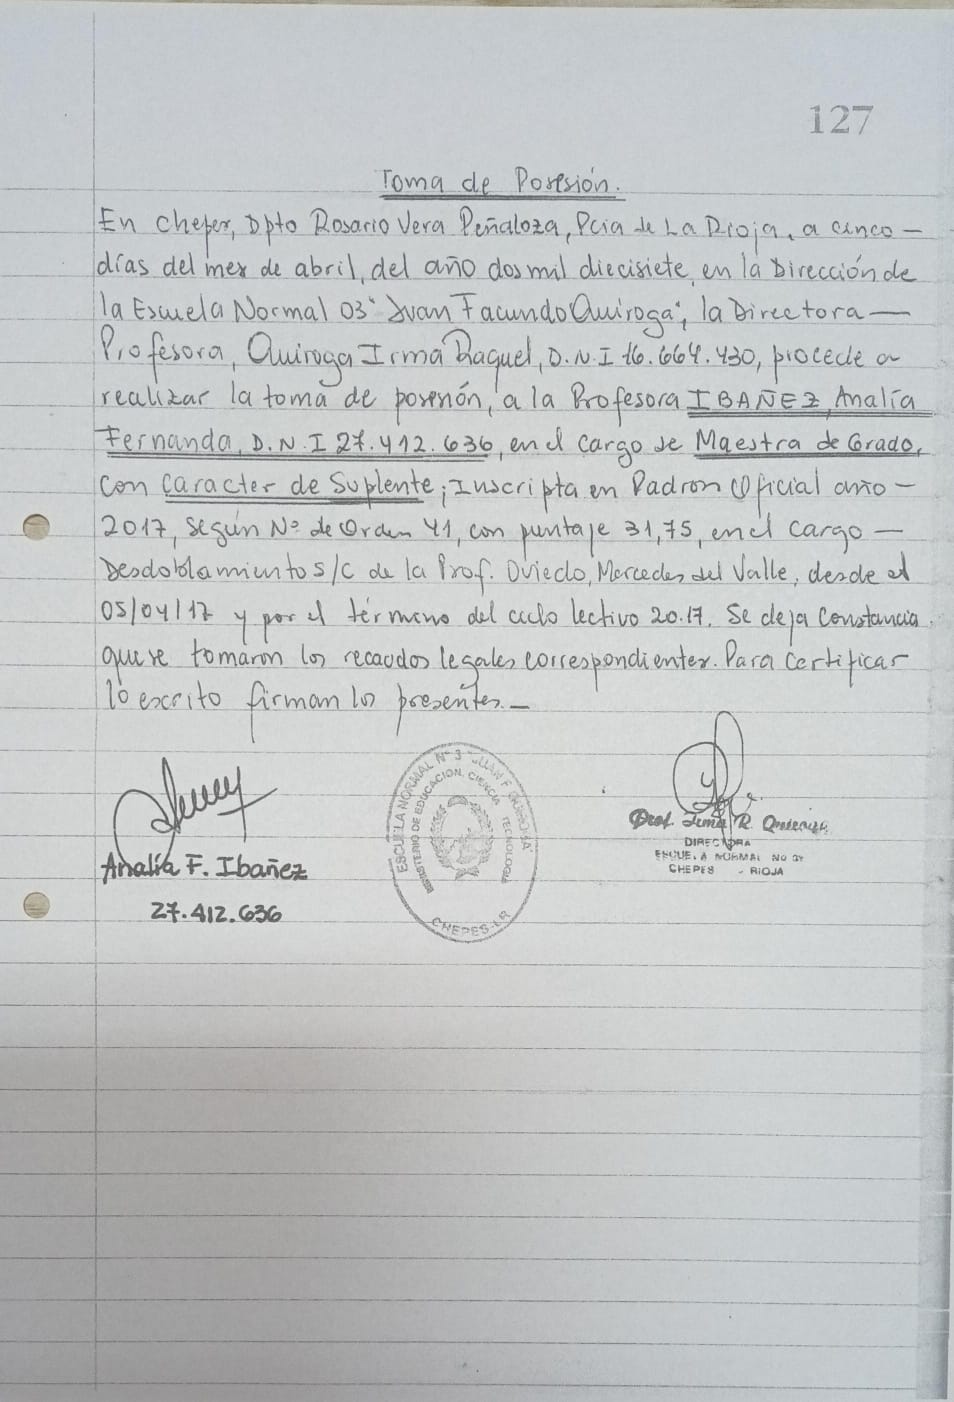 127
Toma de Posesión.
En Chepes, Dpto Rosario Vera Peñaloza, Pcia de La Rioja, a cinco —
días del mes de abril, del año dos mil diecisiete, en la Dirección de
la Escuela Normal 03 "Juan Facundo Quiroga", la Directora —
Profesora, Quiroga Irma Raquel, D.N.I 16.664.430, procede a
realizar la toma de posesión, a la Profesora IBAÑEZ, Analía
Fernanda, D.N.I 27.412.636, en el cargo de Maestra de Grado,
con caracter de Suplente; Inscripta en Padron Oficial año —
2017, según Nº de Orden 41, con puntaje 31,75, en el cargo —
Desdoblamiento s/c de la Prof. Oviedo, Mercedes del Valle, desde el
05/04/17 y por el término del ciclo lectivo 20.17. Se deja Constancia
que se tomaron los recaudos legales correspondientes. Para certificar
lo escrito firman los presentes. —
Analía F. Ibañez
27.412.636
ESCUELA NORMAL Nº 3 "JUAN F. QUIROGA"
MINISTERIO DE EDUCACION, CIENCIA TECNOLOGIA
CHEPES-LR
Prof. Irma R. Quiroga
DIRECTORA
ESCUELA NORMAL NO 3
CHEPES - RIOJA